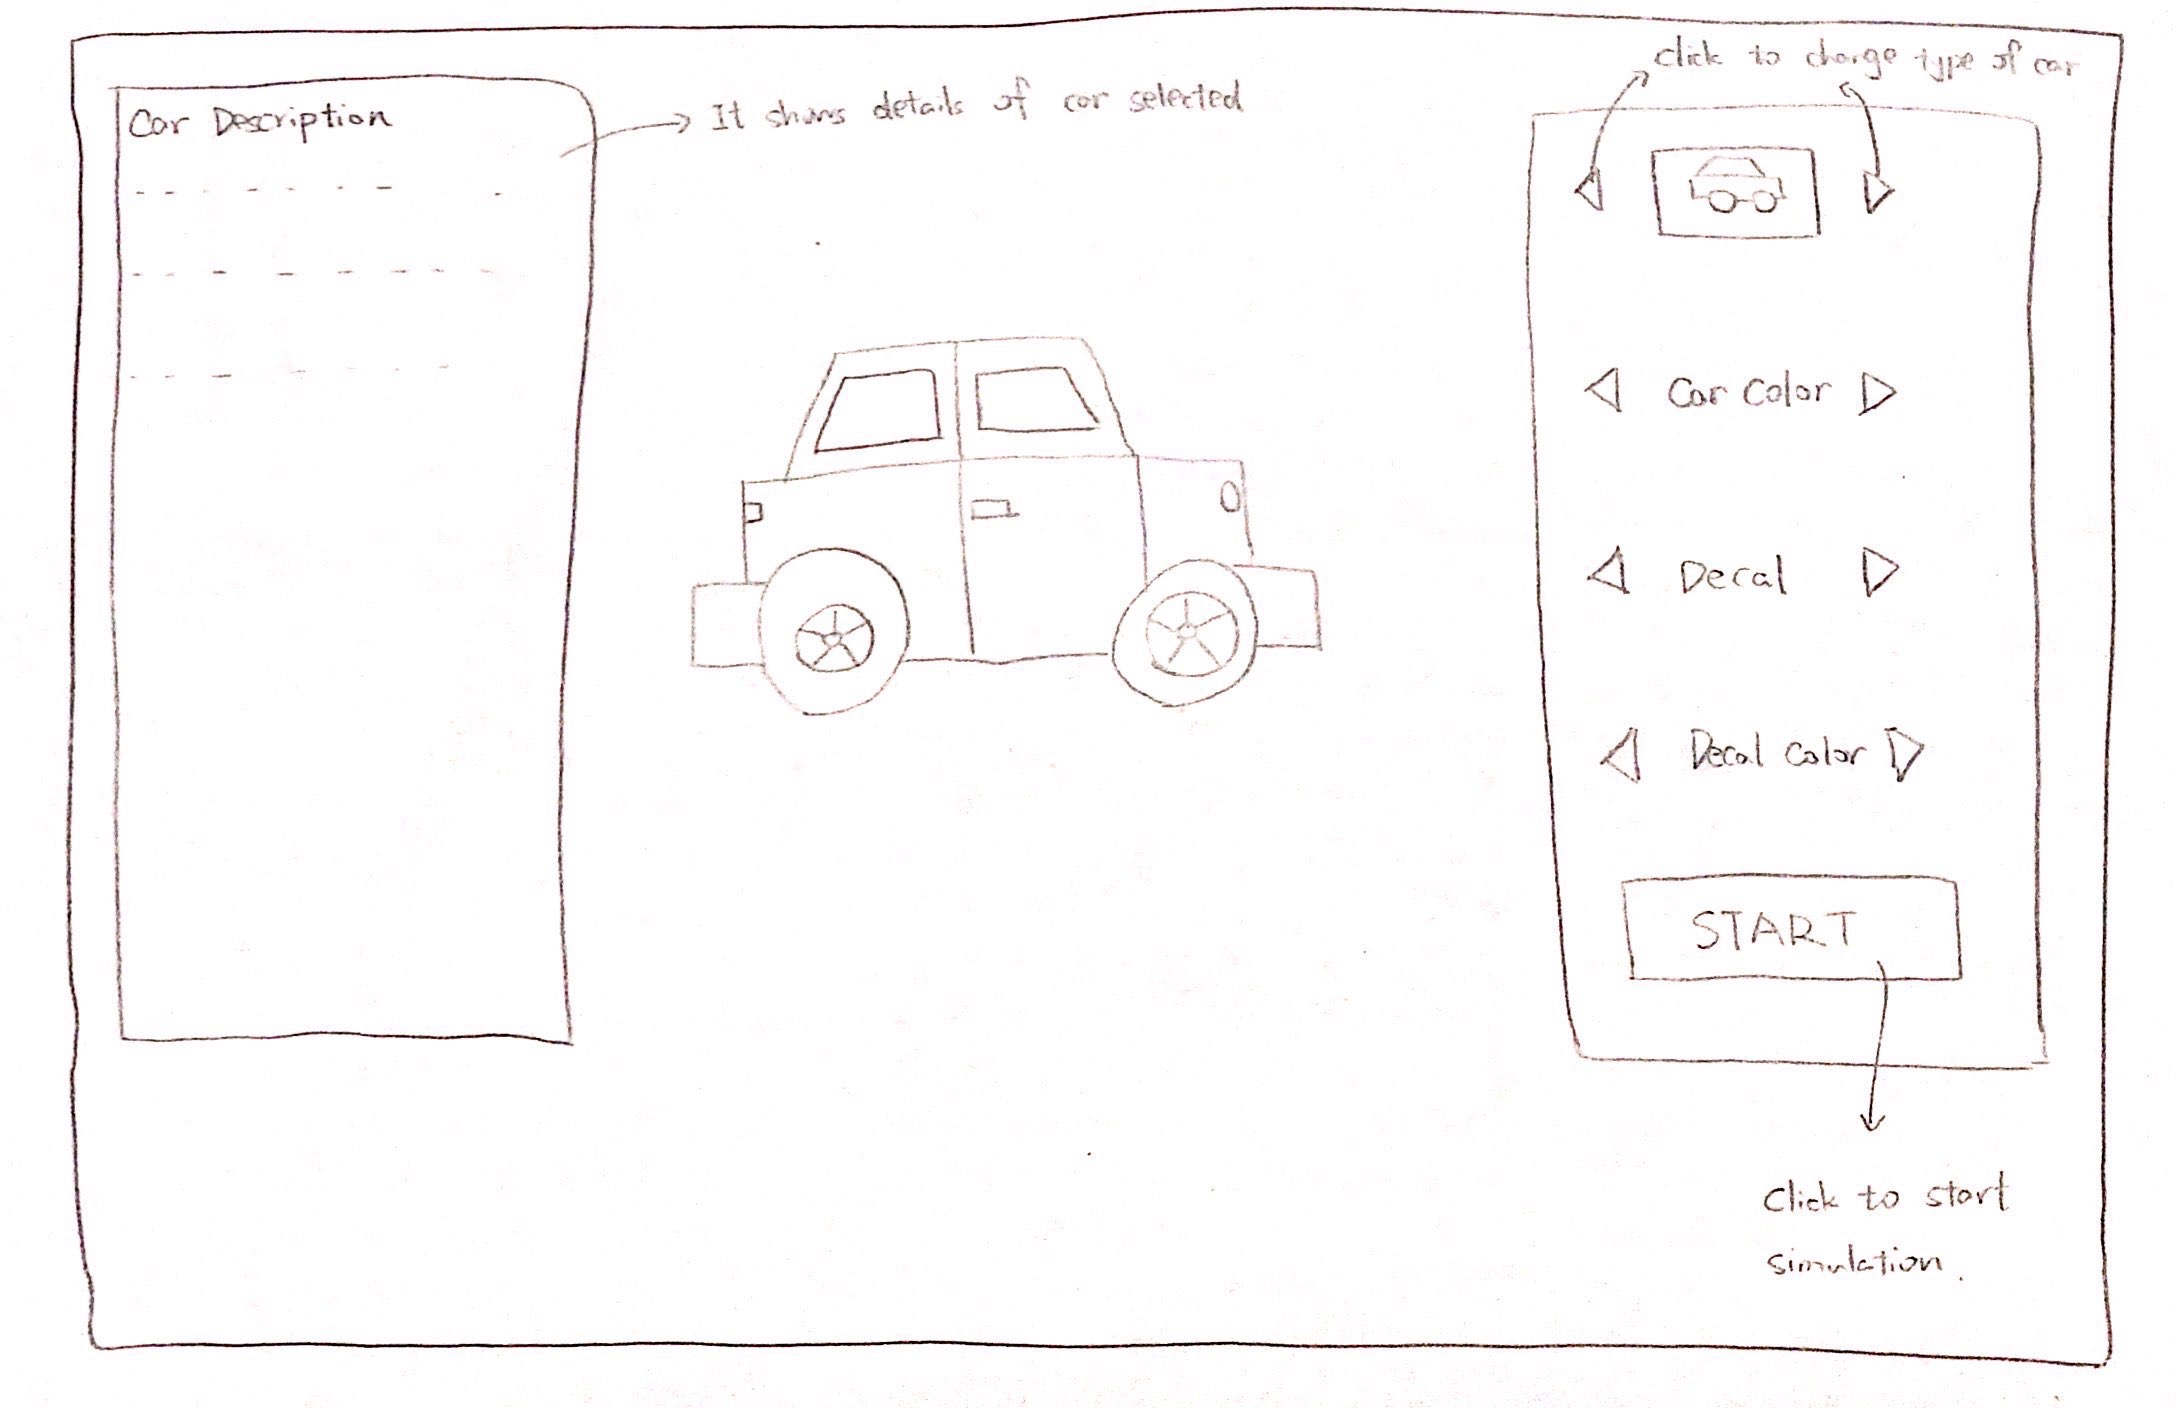 Car Description
It shows details of car selected
click to change type of car
Car Color
Decal
Decal Color
START
Click to start
simulation.